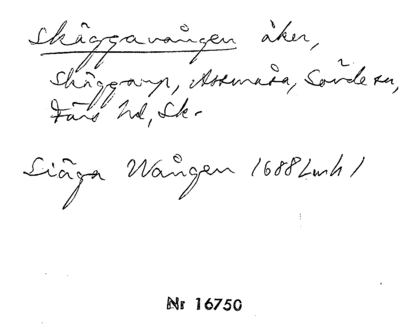 Skäggavången åker,
Skäggarp, Assmåsa, Sövde sn,
Färs hd, Sk.
Siäga Wången 1688 Lmh 1
Nr 16750